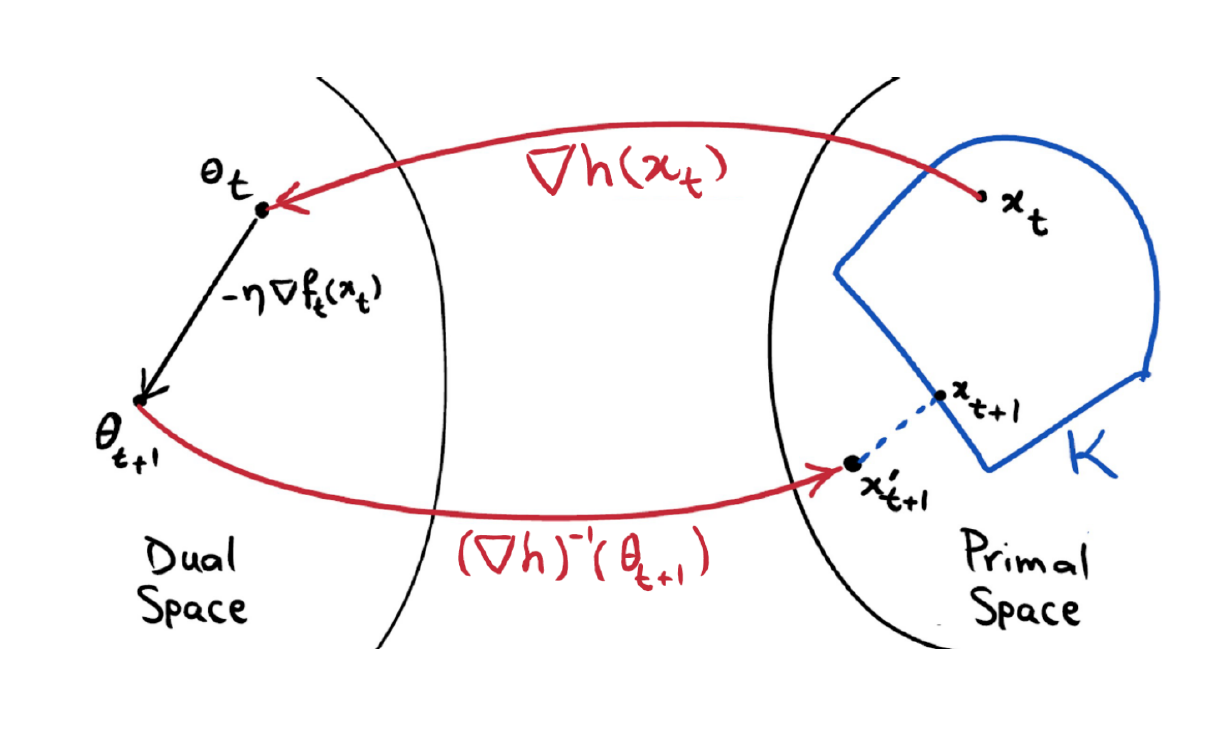 ∇h(x_t)
θ_t
x_t
-η∇f_t(x_t)
x_{t+1}
θ_{t+1}
K
x'_{t+1}
(∇h)^{-1}(θ_{t+1})
Dual
Space
Primal
Space